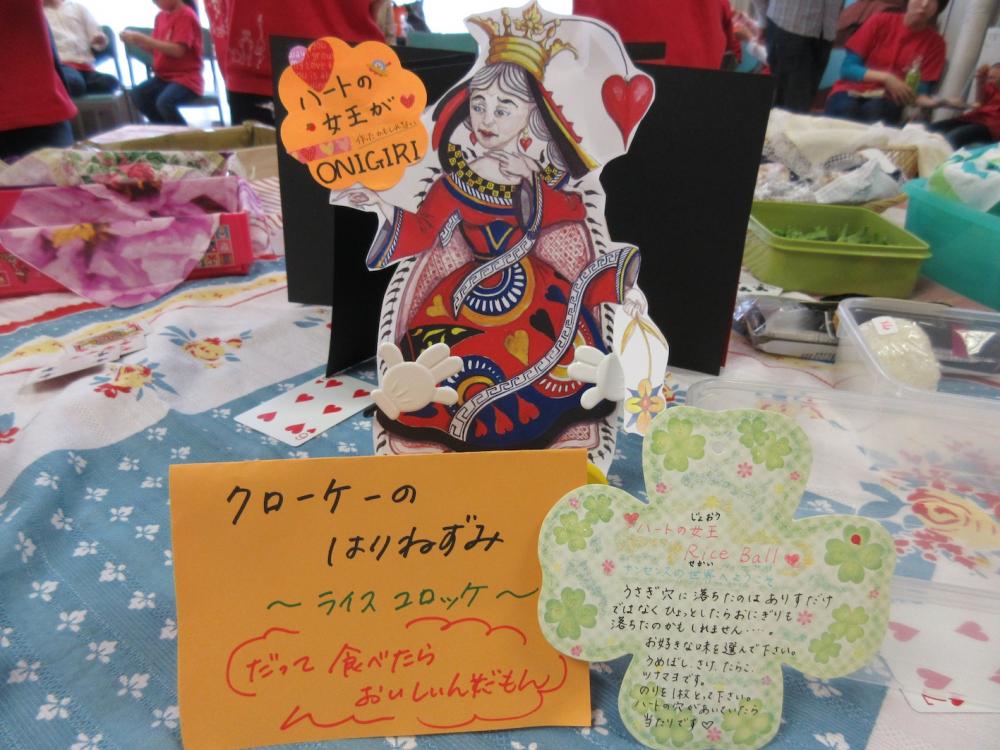 ハートの
女王が
作ったかもしれない
ONIGIRI
クローケーの
はりねずみ
～ライスコロッケ～
だって食べたら
おいしいんだもん
じょおう
ハートの女王
Rice Ball
せかい
ナンセンスの世界へようこそ
うさぎ穴に落ちたのはありすだけ
ではなくひょっとしたらおにぎりも
落ちたのかもしれません・・・・。
お好きな味を選んで下さい。
うめぼし、さけ、たらこ、
ツナマヨです。
のりを1枚とって下さい。
ハートの穴があいていたら
当たりです♡